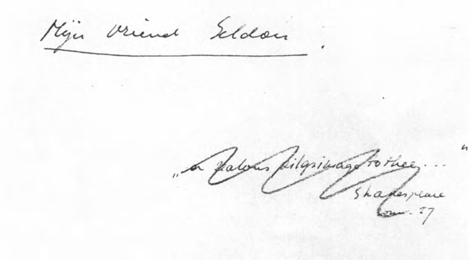 Mijn vriend
„a zealous pilgrimage to thee..."
Shakespeare
sonn. 27